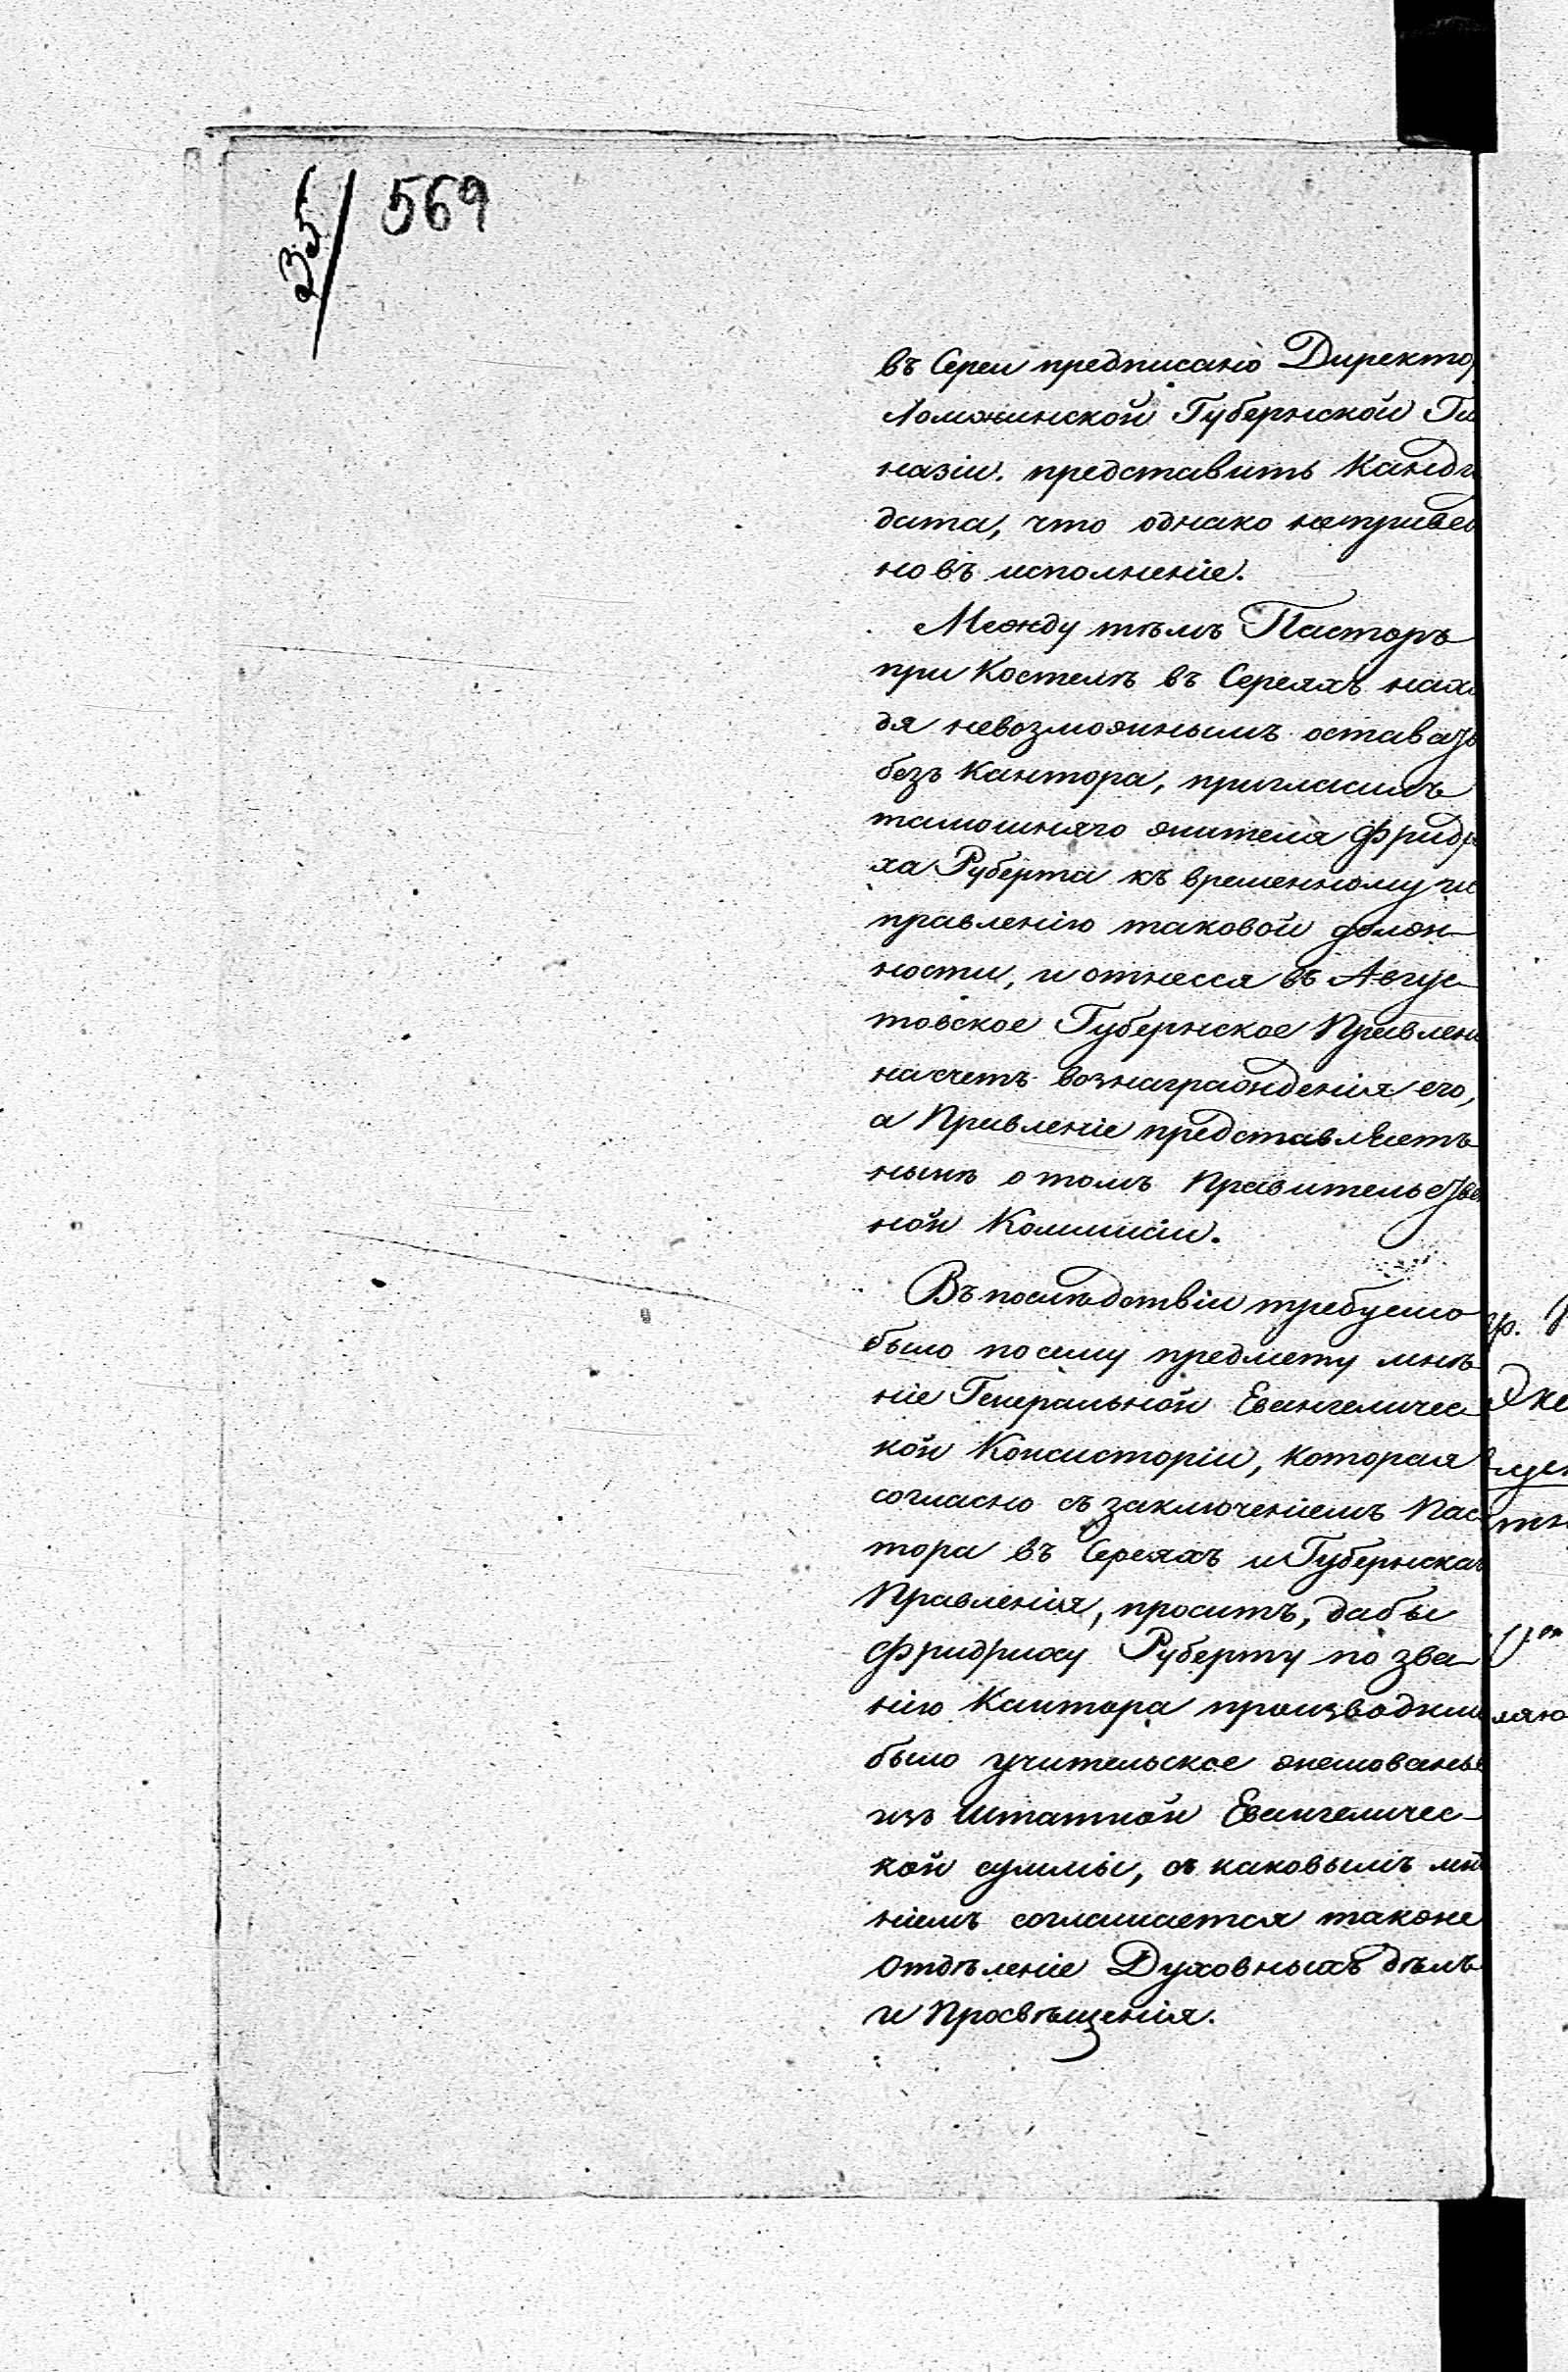 35/569
въ Сереи предписано Директо
Ломжинской Губернской Ги
назіи. представить Канди
дата, что однако неприве
но въ исполненіе.
Между тѣмъ Пасторъ
при Костелѣ въ Сереяхъ нахо
дя невозможнымъ оставать
безъ Кантора, пригласилъ
тамошняго жителя Фридри
ха Руберта къ временному ис
правленію таковой долж
ности, и отнесся въ Авгус
товское Губернское Правлені
на счетъ вознагражденія его,
а Правленіе представляетъ
нынѣ о томъ Правительстве
ной Коммисіи.
Въ послѣдствіи требуемо
было по сему предмету мнѣ
ніе Генеральной Евангеличес
кой Консисторіи, которая
согласно съ заключеніемъ Пас
тора въ Сереяхъ и Губернска
Правленія, проситъ, дабы
Фридриху Руберту по зва
нію Кантора производим
было учительское жалованье
изъ штатной Евангеличес
кой суммы, съ каковымъ мнѣ
ніемъ соглашается также
Отдѣленіе Духовныхъ дѣлъ
и Просвѣщенія.